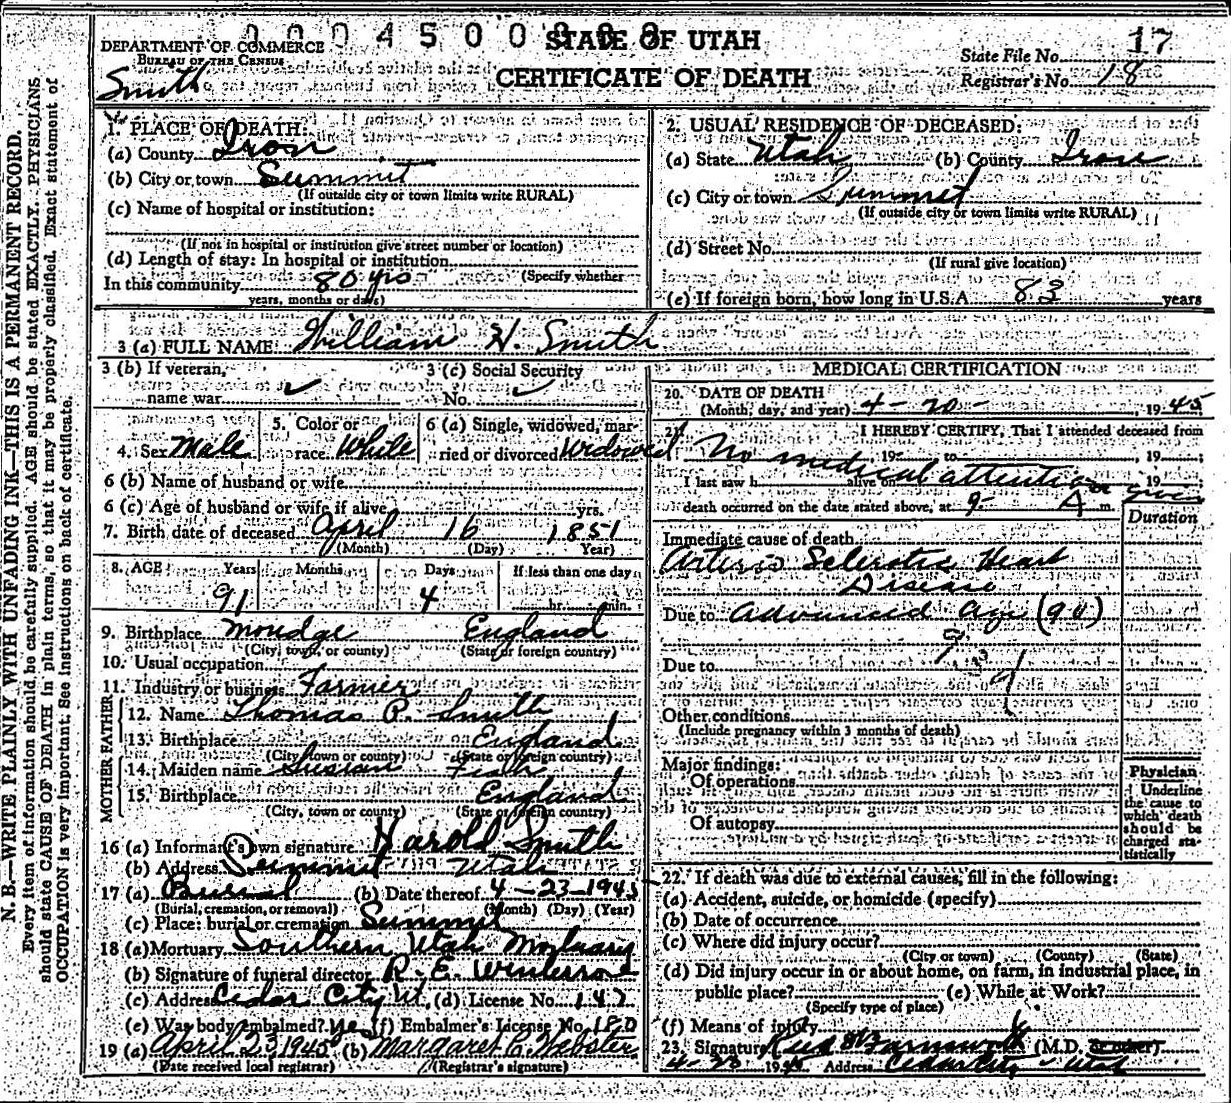 00045000888
STATE OF UTAH
CERTIFICATE OF DEATH
DEPARTMENT OF COMMERCE
BUREAU OF THE CENSUS
Smith
State File No. 17
Registrar's No. 18
N. B.—WRITE PLAINLY WITH UNFADING INK—THIS IS A PERMANENT RECORD.
Every item of information should be carefully supplied. AGE should be stated EXACTLY. PHYSICIANS
should state CAUSE OF DEATH in plain terms, so that it may be properly classified. Exact statement of
OCCUPATION is very important. See instructions on back of certificate.
1. PLACE OF DEATH:
(a) County Iron
(b) City or town Summit
(If outside city or town limits write RURAL)
(c) Name of hospital or institution:
(If not in hospital or institution give street number or location)
(d) Length of stay: In hospital or institution
(Specify whether
In this community 80 yrs
years, months or days)
2. USUAL RESIDENCE OF DECEASED:
(a) State Utah (b) County Iron
(c) City or town Summit
(If outside city or town limits write RURAL)
(d) Street No.
(If rural give location)
(e) If foreign born, how long in U.S.A 83 years
3 (a) FULL NAME William H. Smith
3 (b) If veteran, name war ✓
3 (c) Social Security No. ✓
4. Sex Male
5. Color or race White
6 (a) Single, widowed, married or divorced Widowed
6 (b) Name of husband or wife
6 (c) Age of husband or wife if alive yrs.
7. Birth date of deceased April 16 1851
(Month) (Day) Year)
8. AGE Years Months Days If less than one day
91 4 hr. min.
9. Birthplace England
(City, town, or county) (State or foreign country)
10. Usual occupation
11. Industry or business Farmer
FATHER
12. Name Thomas P. Smith
13. Birthplace England
(City, town or county) (State or foreign country)
MOTHER
14. Maiden name Fish
15. Birthplace England
(City, town, or county) (State or foreign country)
16 (a) Informant's own signature Harold Smith
(b) Address Summit Utah
17 (a) Burial (b) Date thereof 4-23-1945
(Burial, cremation, or removal) (Month) (Day) (Year)
(c) Place: burial or cremation Summit
18 (a) Mortuary Southern Utah Mortuary
(b) Signature of funeral director R. E.
(c) Address Cedar City Ut. (d) License No. 147
(e) Was body embalmed? Yes (f) Embalmer's License No. 180
19 (a) April 23, 1945 (b) Margaret C. Webster
(Date received local registrar) (Registrar's signature)
MEDICAL CERTIFICATION
20. DATE OF DEATH
(Month, day, and year) 4-20-, 1945
21. I HEREBY CERTIFY, That I attended deceased from
, 19 to , 19 ;
No medical attention given
I last saw h alive on , 19 ;
death occurred on the date stated above, at 9- A m.
Duration
Immediate cause of death
Arterio Sclerotic Heart
Disease
Due to Advanced Age (90)
Due to
Other conditions
(Include pregnancy within 3 months of death)
Major findings:
Of operations
Of autopsy
Physician
Underline
the cause to
which death
should be
charged sta-
tistically
22. If death was due to external causes, fill in the following:
(a) Accident, suicide, or homicide (specify)
(b) Date of occurrence
(c) Where did injury occur?
(City or town) (County) (State)
(d) Did injury occur in or about home, on farm, in industrial place, in
public place? (e) While at Work?
(Specify type of place)
(f) Means of injury
23. Signature (M.D. or other)
4-23 1945 Address Cedar City Utah